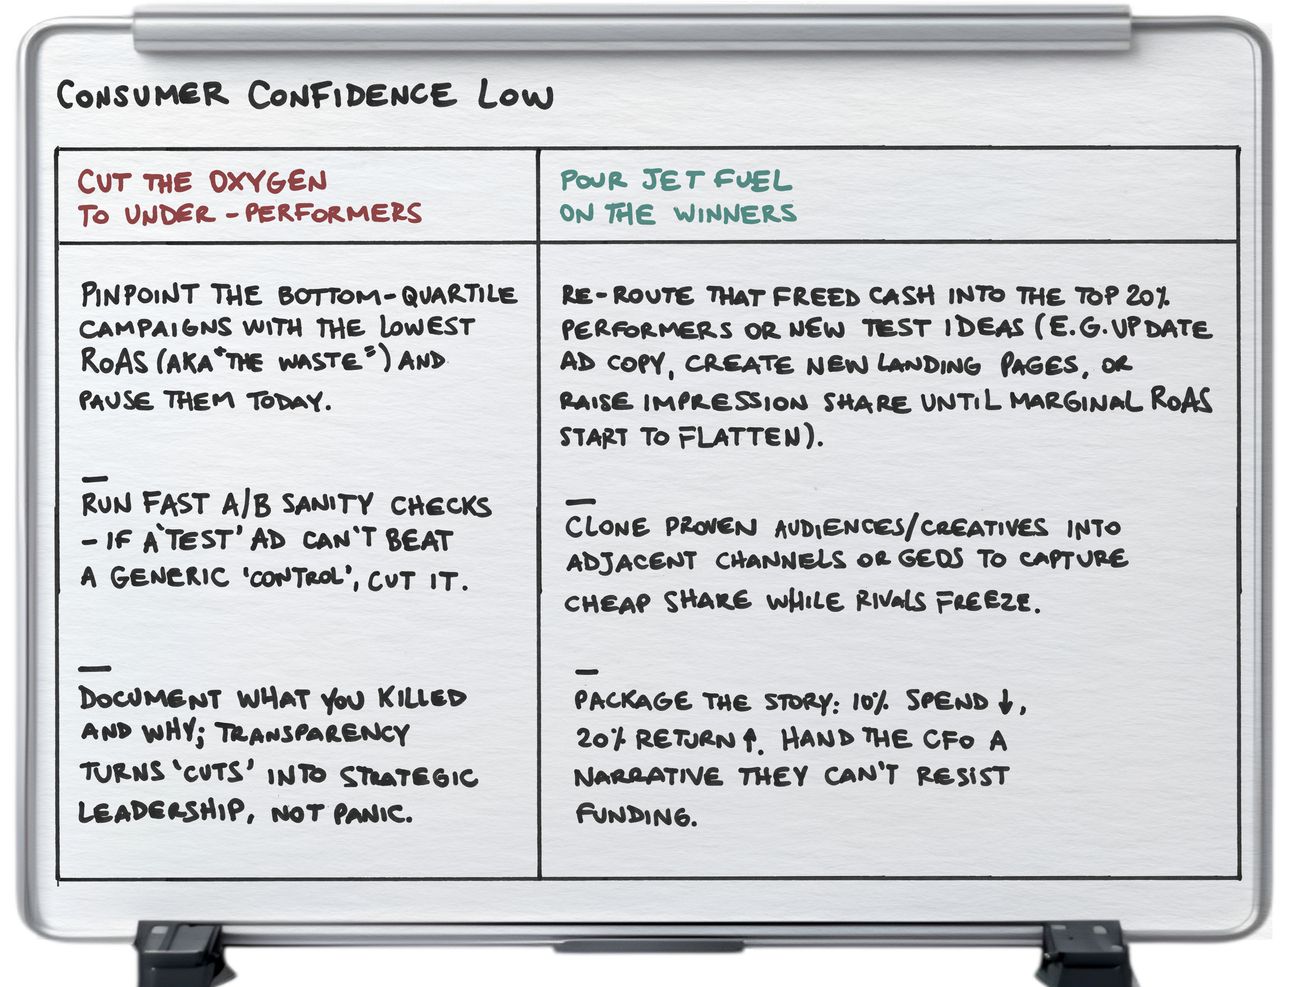 CONSUMER CONFIDENCE LOW
CUT THE OXYGEN
TO UNDER-PERFORMERS
PINPOINT THE BOTTOM-QUARTILE
CAMPAIGNS WITH THE LOWEST
ROAS (AKA "THE WASTE") AND
PAUSE THEM TODAY.
—
RUN FAST A/B SANITY CHECKS
- IF A 'TEST' AD CAN'T BEAT
A GENERIC 'CONTROL', CUT IT.
—
DOCUMENT WHAT YOU KILLED
AND WHY; TRANSPARENCY
TURNS 'CUTS' INTO STRATEGIC
LEADERSHIP, NOT PANIC.
POUR JET FUEL
ON THE WINNERS
RE-ROUTE THAT FREED CASH INTO THE TOP 20%
PERFORMERS OR NEW TEST IDEAS (E.G. UPDATE
AD COPY, CREATE NEW LANDING PAGES, OR
RAISE IMPRESSION SHARE UNTIL MARGINAL ROAS
START TO FLATTEN).
—
CLONE PROVEN AUDIENCES/CREATIVES INTO
ADJACENT CHANNELS OR GEOS TO CAPTURE
CHEAP SHARE WHILE RIVALS FREEZE.
—
PACKAGE THE STORY: 10% SPEND ↓,
20% RETURN ↑. HAND THE CFO A
NARRATIVE THEY CAN'T RESIST
FUNDING.